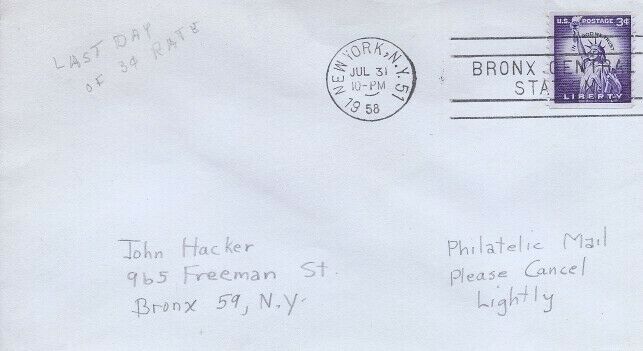 LAST DAY
OF 3¢ RATE
NEW YORK, N.Y. 51
JUL 31
10-PM
1958
BRONX CENTRAL
STA
U.S. POSTAGE 3¢
IN GOD WE TRUST
LIBERTY
John Hacker
965 Freeman St.
Bronx 59, N.Y.
Philatelic Mail
Please Cancel
Lightly